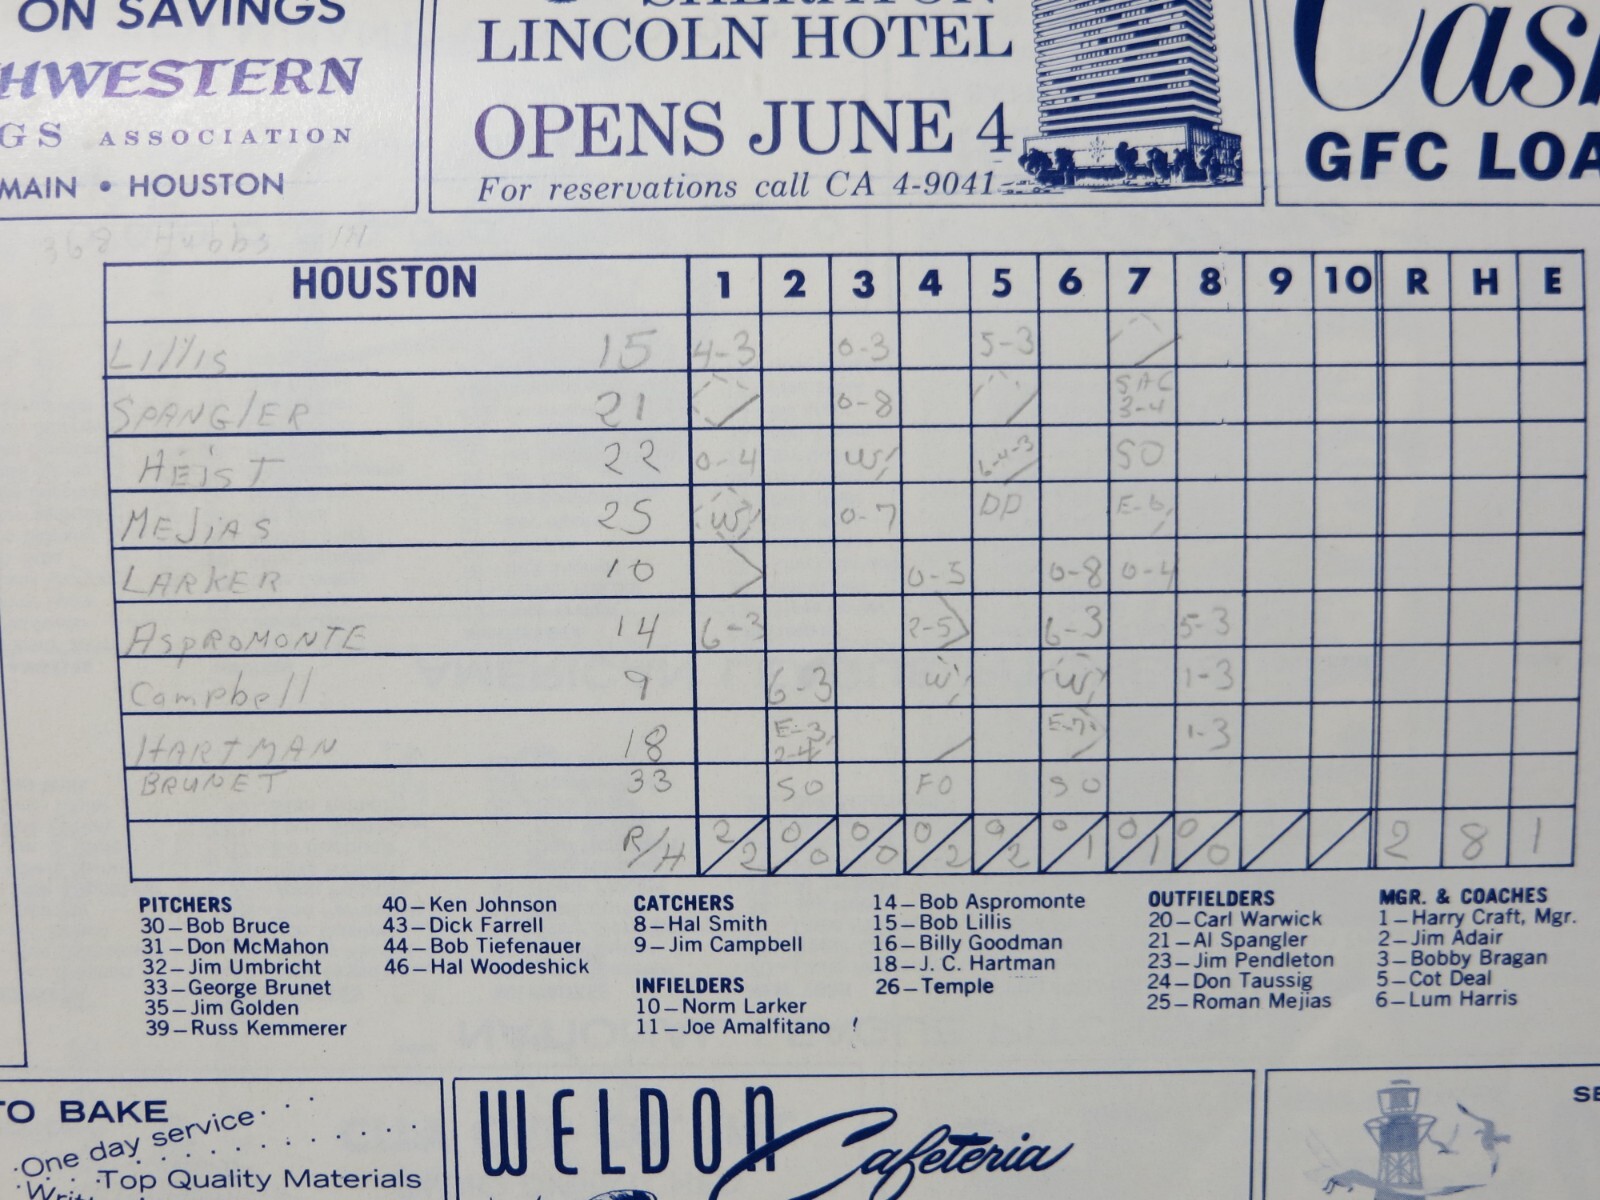 ON SAVINGS
HWESTERN
GS ASSOCIATION
MAIN • HOUSTON
SHERATON
LINCOLN HOTEL
OPENS JUNE 4
For reservations call CA 4-9041
Cas
GFC LOA
368 Hubbs IN
HOUSTON 1 2 3 4 5 6 7 8 9 10 R H E
Lillis 15 4-3 0-3 5-3
SPANGLER 21 0-8 SAC 3-4
HEIST 22 0-4 W 6-4-3 SO
MEJIAS 25 W 0-7 DP E-6
LARKER 10 0-5 0-8 0-4
ASPROMONTE 14 6-3 2-5 6-3 5-3
Campbell 9 6-3 W W 1-3
HARTMAN 18 E-3 2-4 E-7 1-3
BRUNET 33 SO FO SO
R/H 2/2 0/0 0/0 0/2 /2 0/1 0/1 0/0 2 8 1
PITCHERS
30—Bob Bruce
31—Don McMahon
32—Jim Umbricht
33—George Brunet
35—Jim Golden
39—Russ Kemmerer
40—Ken Johnson
43—Dick Farrell
44—Bob Tiefenauer
46—Hal Woodeshick
CATCHERS
8—Hal Smith
9—Jim Campbell
INFIELDERS
10—Norm Larker
11—Joe Amalfitano
14—Bob Aspromonte
15—Bob Lillis
16—Billy Goodman
18—J. C. Hartman
26—Temple
OUTFIELDERS
20—Carl Warwick
21—Al Spangler
23—Jim Pendleton
24—Don Taussig
25—Roman Mejias
MGR. & COACHES
1—Harry Craft, Mgr.
2—Jim Adair
3—Bobby Bragan
5—Cot Deal
6—Lum Harris
TO BAKE
One day service
Top Quality Materials
WELDON
Cafeteria
SE